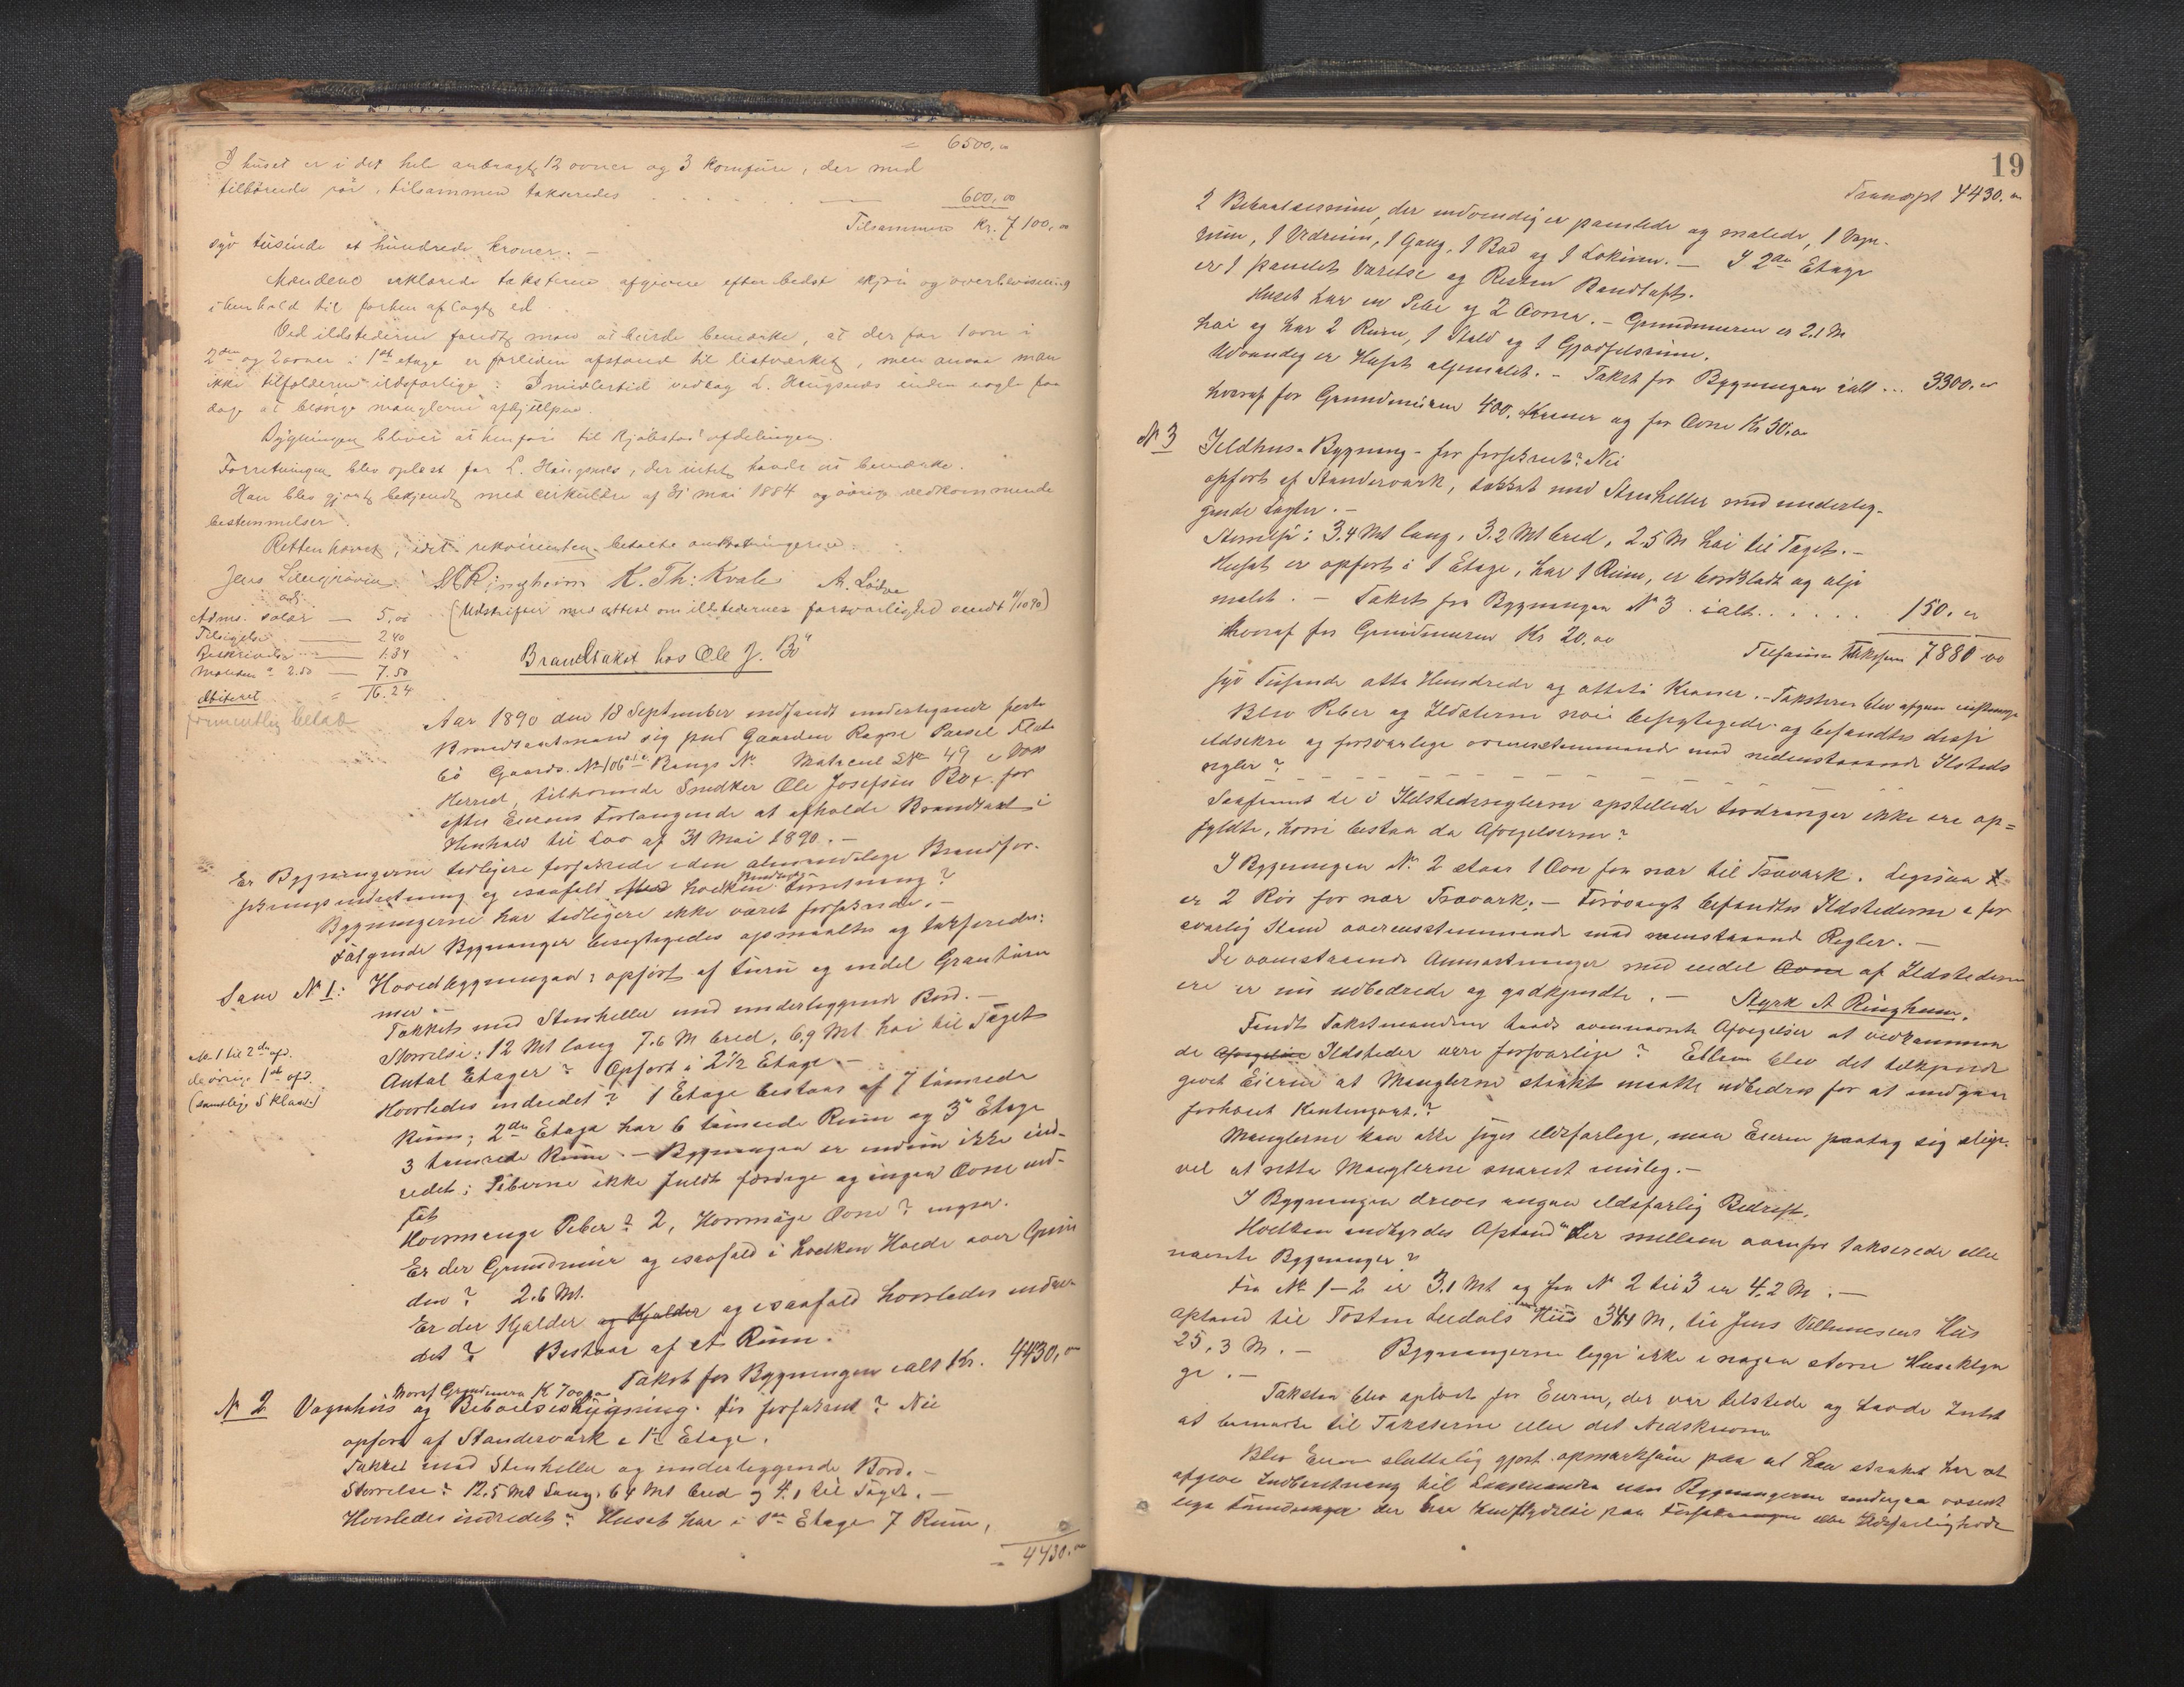 = 6500,00
I huset er i det hele anbragt 12 ovner og 3 komfure, der med
tilhørende rør, tilsammen takseredes . . . . . . — 600,00
Tilsammen Kr. 7100,00
syv tusinde et hundrede kroner. —
Mændene erklærede taksterne afgivne efter bedste skjøn og overbevisning
i henhold til forhen aflagt ed.
Ved ildstederne fandt man at burde bemærke, at der for 1 ovn i
2den og 2 ovner i 1st etage er forliden afstand til listværket, men ansaa man
ikke tilfælderne ildsfarlige: Imidlertid vedtog L. Haugsnæs inden nogle faa
dage at besørge manglerne afhjulpne.
Bygningen bliver at henføre til kjøbstadafdelingen.
Forretningen blev oplæst for L. Haugsnæs, der intet havde at bemærke.
Han blev gjort bekjendt med cirkulære af 31 mai 1884 og øvrige vedkommende
bestemmelser.
Retten hævet, idet rekvirenten betalte omkostningerne.
Jens A. Ringheim K. Th: Kvale A. Lødve
adj.
(Udskrifter med attest om ildstedernes forsvarlighed sendt 11/10 90)
Adms. salær — 5,00
Tilsigelse — 2.40
Beskrivelse — 1.34
Mændene a 2.50 — 7.50
debiteret = 16.24
formentlig betalt
Brandtakst hos Ole J. Bø
Aar 1890 den 18 September indfandt undertegnede faste
Brandtaxtmænd sig paa Gaarden Rogne Parsel
bø Gaards. No 106 Brugs No Matrcul L No 49 i Voss
Herred, tilhørende Snedker Ole Josefsen Bø. for
efter Eierens Forlangende at afholde Brandtaxt i
Henhold til Lov af 31 Mai 1890. —
Er Bygningerne tidligere forsikrede i den almindelige Brandfor-
sikringsindretning og isaafald hvilken Brandtax Indretning?
Bygningerne har tidligere ikke været forsikrede. —
Følgende Bygninger besigtigedes opmaaltes og taxseredes:
Som No 1: Hovedbygningen; opført af Furu og endel Grantøm
mer. —
Takket med Stenheller med underliggende Bord. —
Størrelse: 12 Mt lang 7.6 M bred, 6,9 Mt høi til Taget
Antal Etager? Opført i 2 1/2 Etage. —
No. 1 til 2den afd.
de øvrige 1ste afd.
(samtlig 5 klasse)
Hvorledes indredet? 1 Etage bestaar af 7 tømrede
Rum; 2den Etage har 6 tømrede Rum og 3' Etage
3 tømrede Rum. — Bygningen er endnu ikke ind-
redet; Piberne ikke fuldt færdige og ingen Ovne ind-
sat
Hvormange Piber? 2, Hvormange Ovne? ingen.
Er der Grundmur og isaafald i hvilken Høide over Grun
den? 2.6 Mt.
Er der Kjælder og Kjælder og isaafald hvorledes indre
det? Bestaar af et Rum.
Takst for Bygningen ialt Kr. 4430,00
hvoraf Grundmuren K 700,00
No 2 Vognhus og Beboelsesbygning. før forsikret? Nei
opført af Standerværk i 1 1/2 Etage.
Takket med Stenheller og underliggende Bord. —
Størrelse: 12.5 Mt Lang, 6.4 Mt bred og 4.1 til Taget. —
Hvorledes indredet? Huset har i 1ste Etage 7 Rum,
= 4430,00
19
Transpt 4430.00
2 Beboelsesrum, der indvendig er panelede og malede, 1 Vogn-
rum, 1 Vedrum, 1 Gang, 1 Bod og 1 Lokrum. — I 2den Etage
er 1 panelet Værelse og Resten Rendtaft.
Huset har en Pibe og 2 Ovne. — Grundmuren er 2.1 M
høi og har 2 Rum, 1 Stald og 1 Gjødselsrum.
Udvendig er Huset oljemalet. — Takst for Bygningen ialt ... 3300,00
hvoraf for Grundmuren 400, Kroner og for Ovne Kr 30,00
No 3 Ildhus-Bygning — før forsikret? Nei
opført af Standerværk, takket med Stenheller med underlig-
gende Lægter. —
Størrelse: 3.4 Mt lang, 3.2 Mt bred, 2.5 M høi til Taget. —
Huset er opført i 1 Etage, har 1 Rum, er bordklædt og olje
malet. — Takst for Bygningen No 3 ialt . . . . . . 150.00
Hvoraf for Grundmuren Kr 20.00
Tilsammen 7880 00
syv Tusende otte Hundrede og otteti Kroner. — Taksterne blev afgivne enstemmig
Blev Piber og Ildsterne nøie besigtigede og befandtes disse
ildsikre og forsvarlige overensstemmende med nedenstaaende Ilsteds
regler?
Saafremt de i Ildstedsreglerne opstillede Fordringer ikke ere op=
fyldte, hvori bestaa da Afvigelserne?
I Bygningen No 2 staar 1 Ovn for nær til Træværk. Ligesaa
er 2 Rør for nær Træværk. — Forøvrigt befandtes Ildstederne i for
svarlig Stand overensstemmende med ovenstaaende Regler. —
De ovenstaaende Anmærkninger med endel Ovne af Ildstederne
ere er nu udbedrede og godkjendte. — Styrk A Ringheim.
Fandt Takstmændene trods ovennævnte Afvigelser at vedkommen
de Afvigelser Ildsteder vare forsvarlige? Ellers blev det tilkjende
givet Eieren at Manglerne strakt maatte udbedres for at undgaa
forhøiet Kontingent.?
Manglerne kan ikke siges ildsfarlige, men Eieren paatog sig alige-
vel at rette Manglerne snarest mulig. —
I Bygningen drives ingen ildsfarlig Bedrift.
Hvilken indbyrdes Afstand er der mellem ovenfor takserede eller
nævnte Bygninger?
Fra No 1—2 er 3.1 Mt og fra No 2 til 3 er 4.2 M. —
afstand til Tosten Lirdals Hus 34,4 M, til Jens Vilhemsens Hus
25,3 M. — Bygningerne ligge ikke i nogen større Huseklyn
ge. —
Taksten blev oplæst for Eieren, der var tilstede og havde Intet
at bemærke til Taksterne eller det Nedskrevne
Blev Eieren sluttelig gjort opmærksom paa at han strakst har at
afgive Indberetning til Lensmanden naar Bygningerne undergaa væsent
lige Forandringer der har Indflydelse paa Forsikringen eller Ildsfarlighede